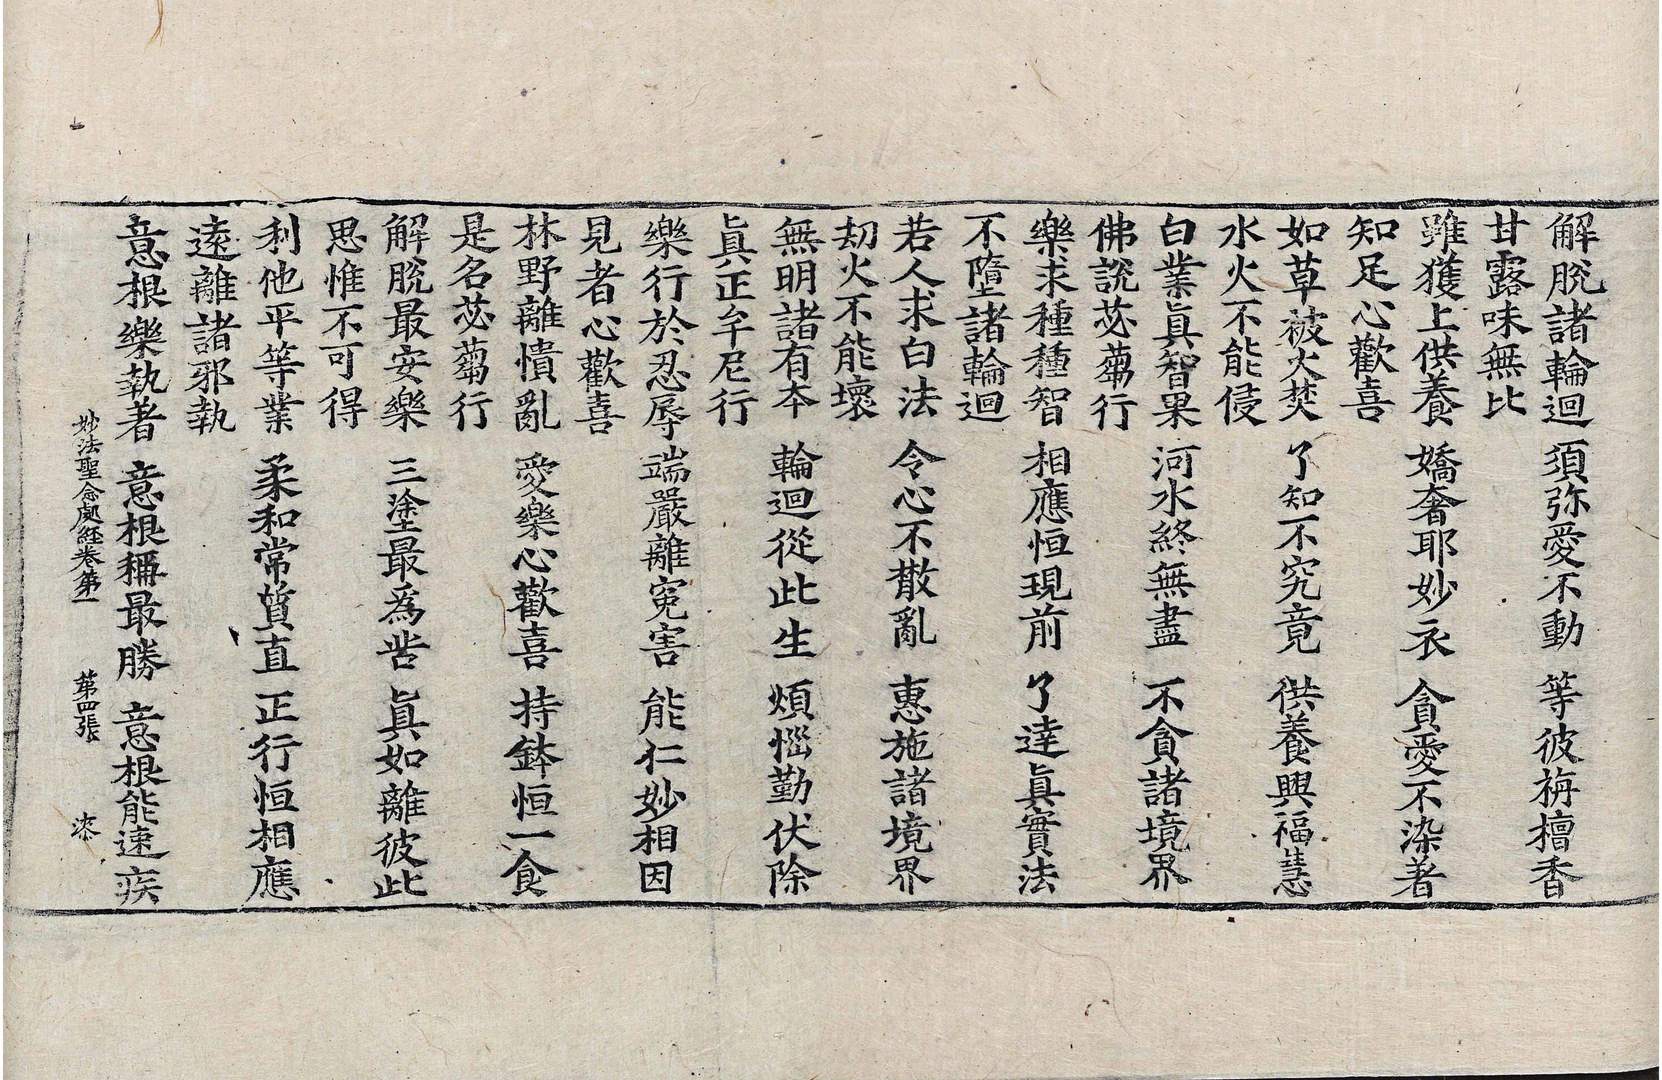 解脫諸輪迴 須弥愛不動 等彼栴檀香
甘露味無比
雖獲上供養 嬌奢耶妙衣 貪愛不染著
知足心歡喜
如草被火焚 了知不究竟 供養興福慧
水火不能侵
白業眞智果 河水終無盡 不貪諸境界
佛說苾蒭行
樂求種種智 相應恒現前 了達眞實法
不墮諸輪迴
若人求白法 令心不散亂 惠施諸境界
劫火不能壞
無明諸有本 輪迴從此生 煩惱勤伏除
眞正牟尼行
樂行於忍辱 端嚴離寃害 能仁妙相因
見者心歡喜
林野離憒亂 愛樂心歡喜 持鉢恒一食
是名苾蒭行
解脫最安樂 三塗最爲苦 眞如離彼此
思惟不可得
利他平等業 柔和常質直 正行恒相應
遠離諸邪執
意根樂執著 意根稱最勝 意根能速疾
妙法聖念處經卷第一 第四張 漆